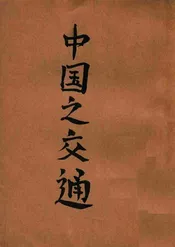 中国之交通